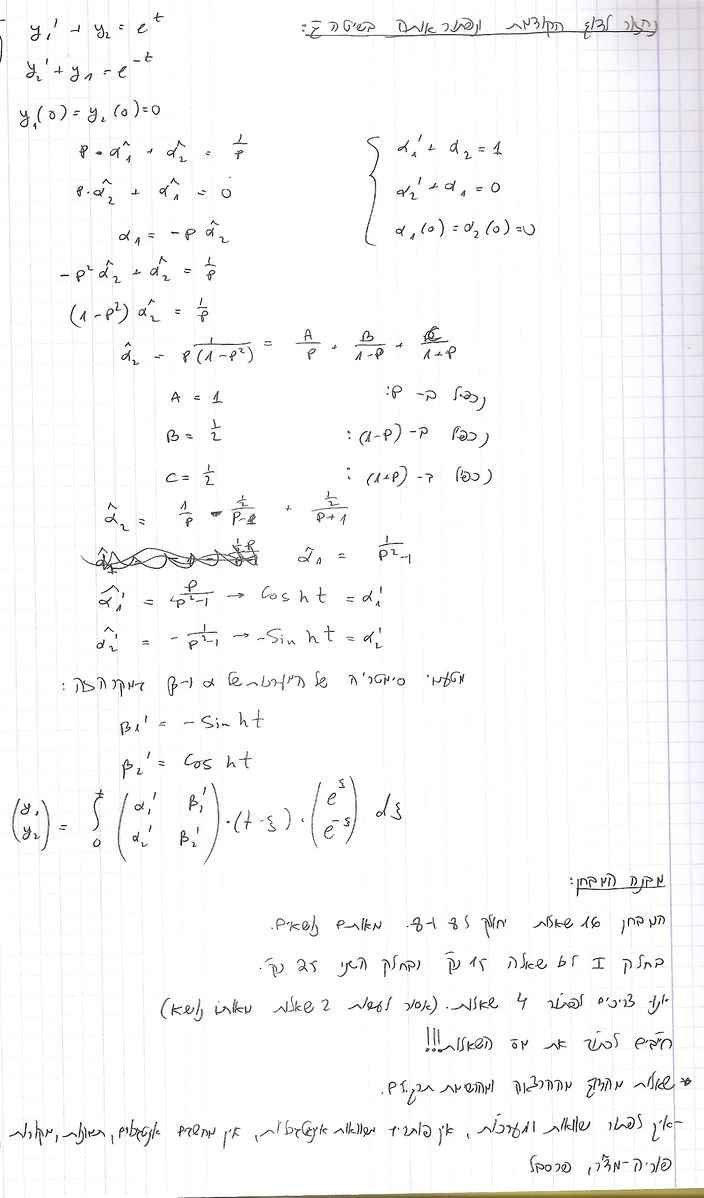 נחזור לדף הקודמת ונפתור אותם בשיטה
y₁' + y₂ = e^t
y₂' + y₁ = e^-t
y₁(0) = y₂(0) = 0
p · α̂₁ + α̂₂ = 1/p
α₁' + α₂ = 1
p · α̂₂ + α̂₁ = 0
α₂' + α₁ = 0
α₁ = -p α̂₂
α₁(0) = α₂(0) = 0
-p² α̂₂ + α̂₂ = 1/p
(1-p²) α̂₂ = 1/p
α̂₂ = 1/(p(1-p²)) = A/p + B/(1-p) + C/(1+p)
A = 1 נכפול ב- p:
B = 1/2 נכפול ב- (1-p):
C = 1/2 נכפול ב- (1+p):
α̂₂ = 1/p - (1/2)/(p-1) + (1/2)/(p+1)
α̂₁ = 1/(p²-1)
α̂₁' = p/(p²-1) → cosh t = α₁'
α̂₂' = -1/(p²-1) → -sinh t = α₂'
מטעמי סימטריה של α ו-β במקרה הזה:
β₁' = -sinh t
β₂' = cosh t
(y₁ y₂) = ∫₀^t (α₁' β₁' α₂' β₂') · (t-ξ) · (e^ξ e^-ξ) dξ
מבנה המבחן:
המבחן 16 שאלות יחולק ל 8 ו-8. מאותם נושאים.
בחלק I כל שאלה 15 נק' ובחלק השני 25 נק'.
אנו צריכים לפתור 4 שאלות. (אסור לעשות 2 שאלות מאותו נושא)
חייבים לפתור את מס' השאלות!!!
* שאלות מהתרגול מההרצאה ומהרשימות
-אין לפתור משוואות ומערכות, אין פותרים משוואות אינטגרליות, אין מחשבים אינטגרלים,
פוריה-מד"ר, פרסבל